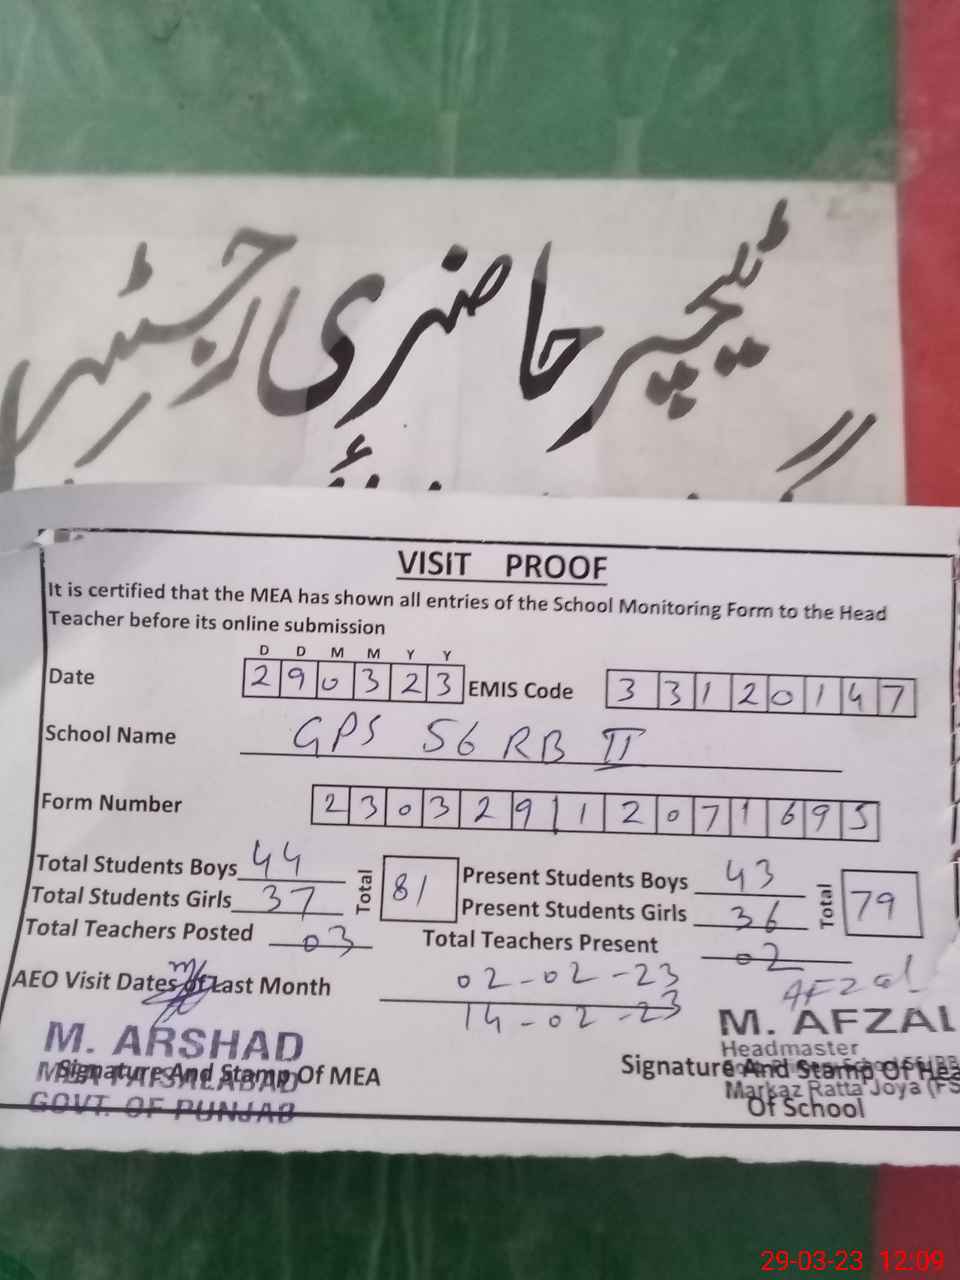 ٹیچر حاضری رجسٹر
VISIT PROOF
It is certified that the MEA has shown all entries of the School Monitoring Form to the Head
Teacher before its online submission
D D M M Y Y
Date 290323 EMIS Code 33120147
School Name GPS 56 RB II
Form Number 230329112071695
Total Students Boys 44 Total 81 Present Students Boys 43 Total 79
Total Students Girls 37 Present Students Girls 36
Total Teachers Posted 03 Total Teachers Present 02
AEO Visit Dates of Last Month 02-02-23
14-02-23
Afzal
M. ARSHAD
MEA FAISALABAD
GOVT. OF PUNJAB
Signature And Stamp Of MEA
M. AFZAL
Headmaster
Markaz Ratta Joya (FS
Signature And Stamp Of Hea
Of School
29-03-23 12:09